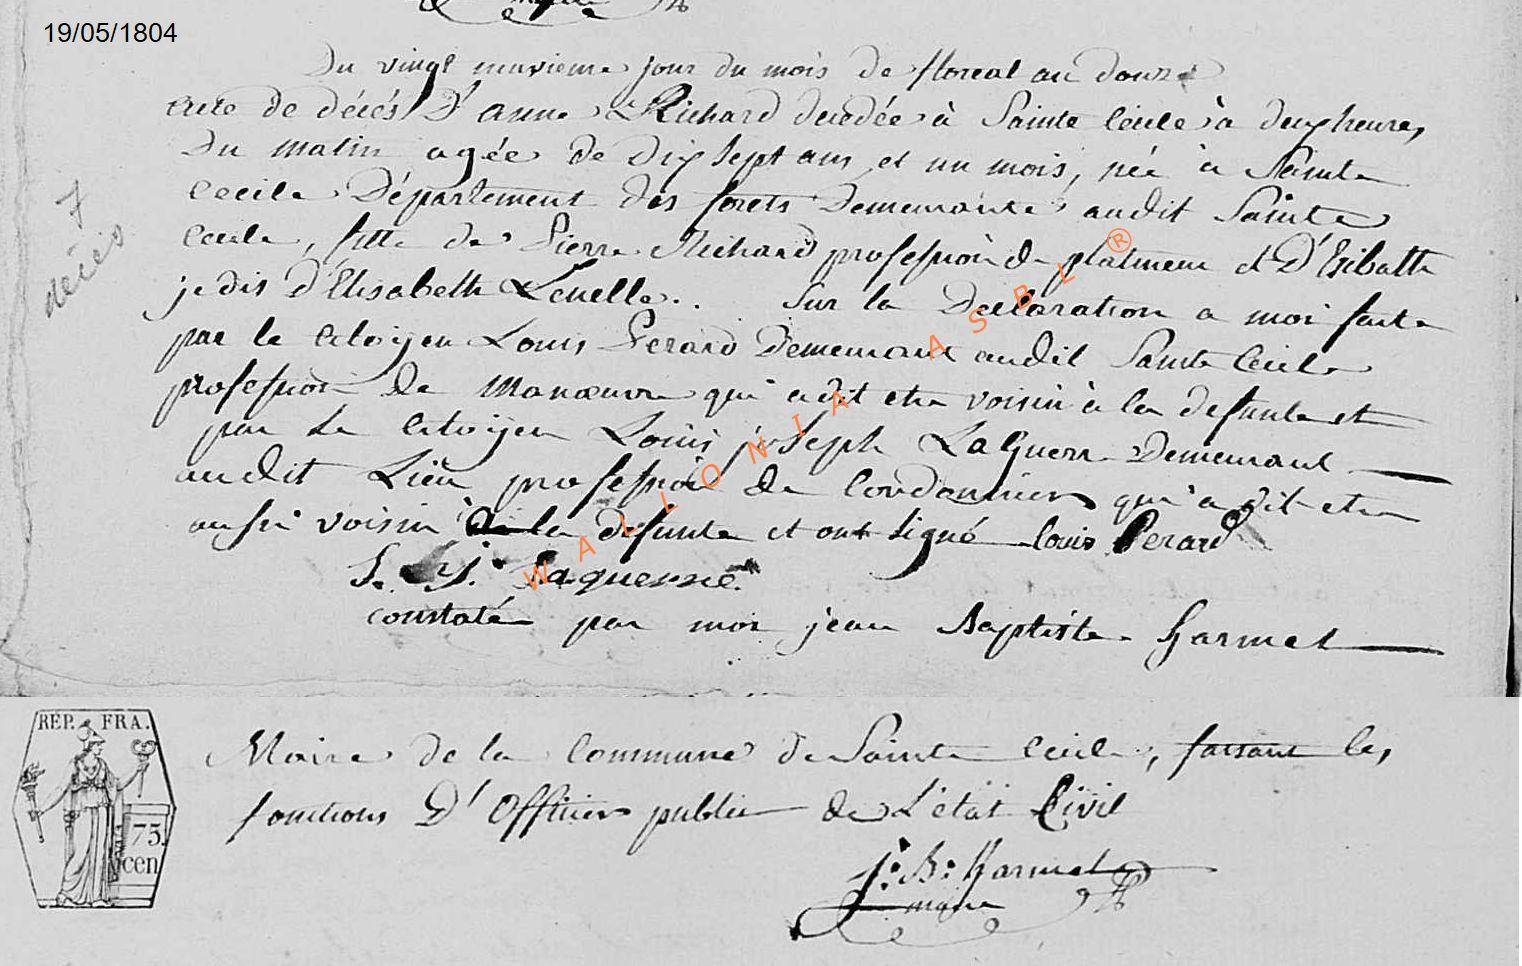 19/05/1804
Du vingt neuvieme jour du mois de floreal an douze
acte de décés D'anne Richard decedée à Sainte Cécile à deux heures
du matin agée de dix sept ans et un mois, née à Sainte
Cecile Département des forets Demeurante audit Sainte
Cecile, fille de Pierre Richard profession de platineur et D'Esibatte
je dis D'Elisabeth Lenelle.. Sur la Declaration a moi faite
par le citoyen Louis Perard Demeurant audit Sainte Cecile
profession de Manœuvre qui a dit etre voisin à la defunte et
par le citoyen Louis joseph LaGuerre Demeurant
audit Lieu profession de Cordonnier qui a dit etre
aussi voisin à la defunte et ont signé louis Perard
L. J. Laguerre
constaté par moi jean Baptiste Harmel
7
décès
WALLONIA ASBL ®
RÉP. FRA.
75
cen
Maire de la Commune de Sainte Cecile, faisant les
fonctions D'Officier public de L'état Civil
J: B: Harmel
maire